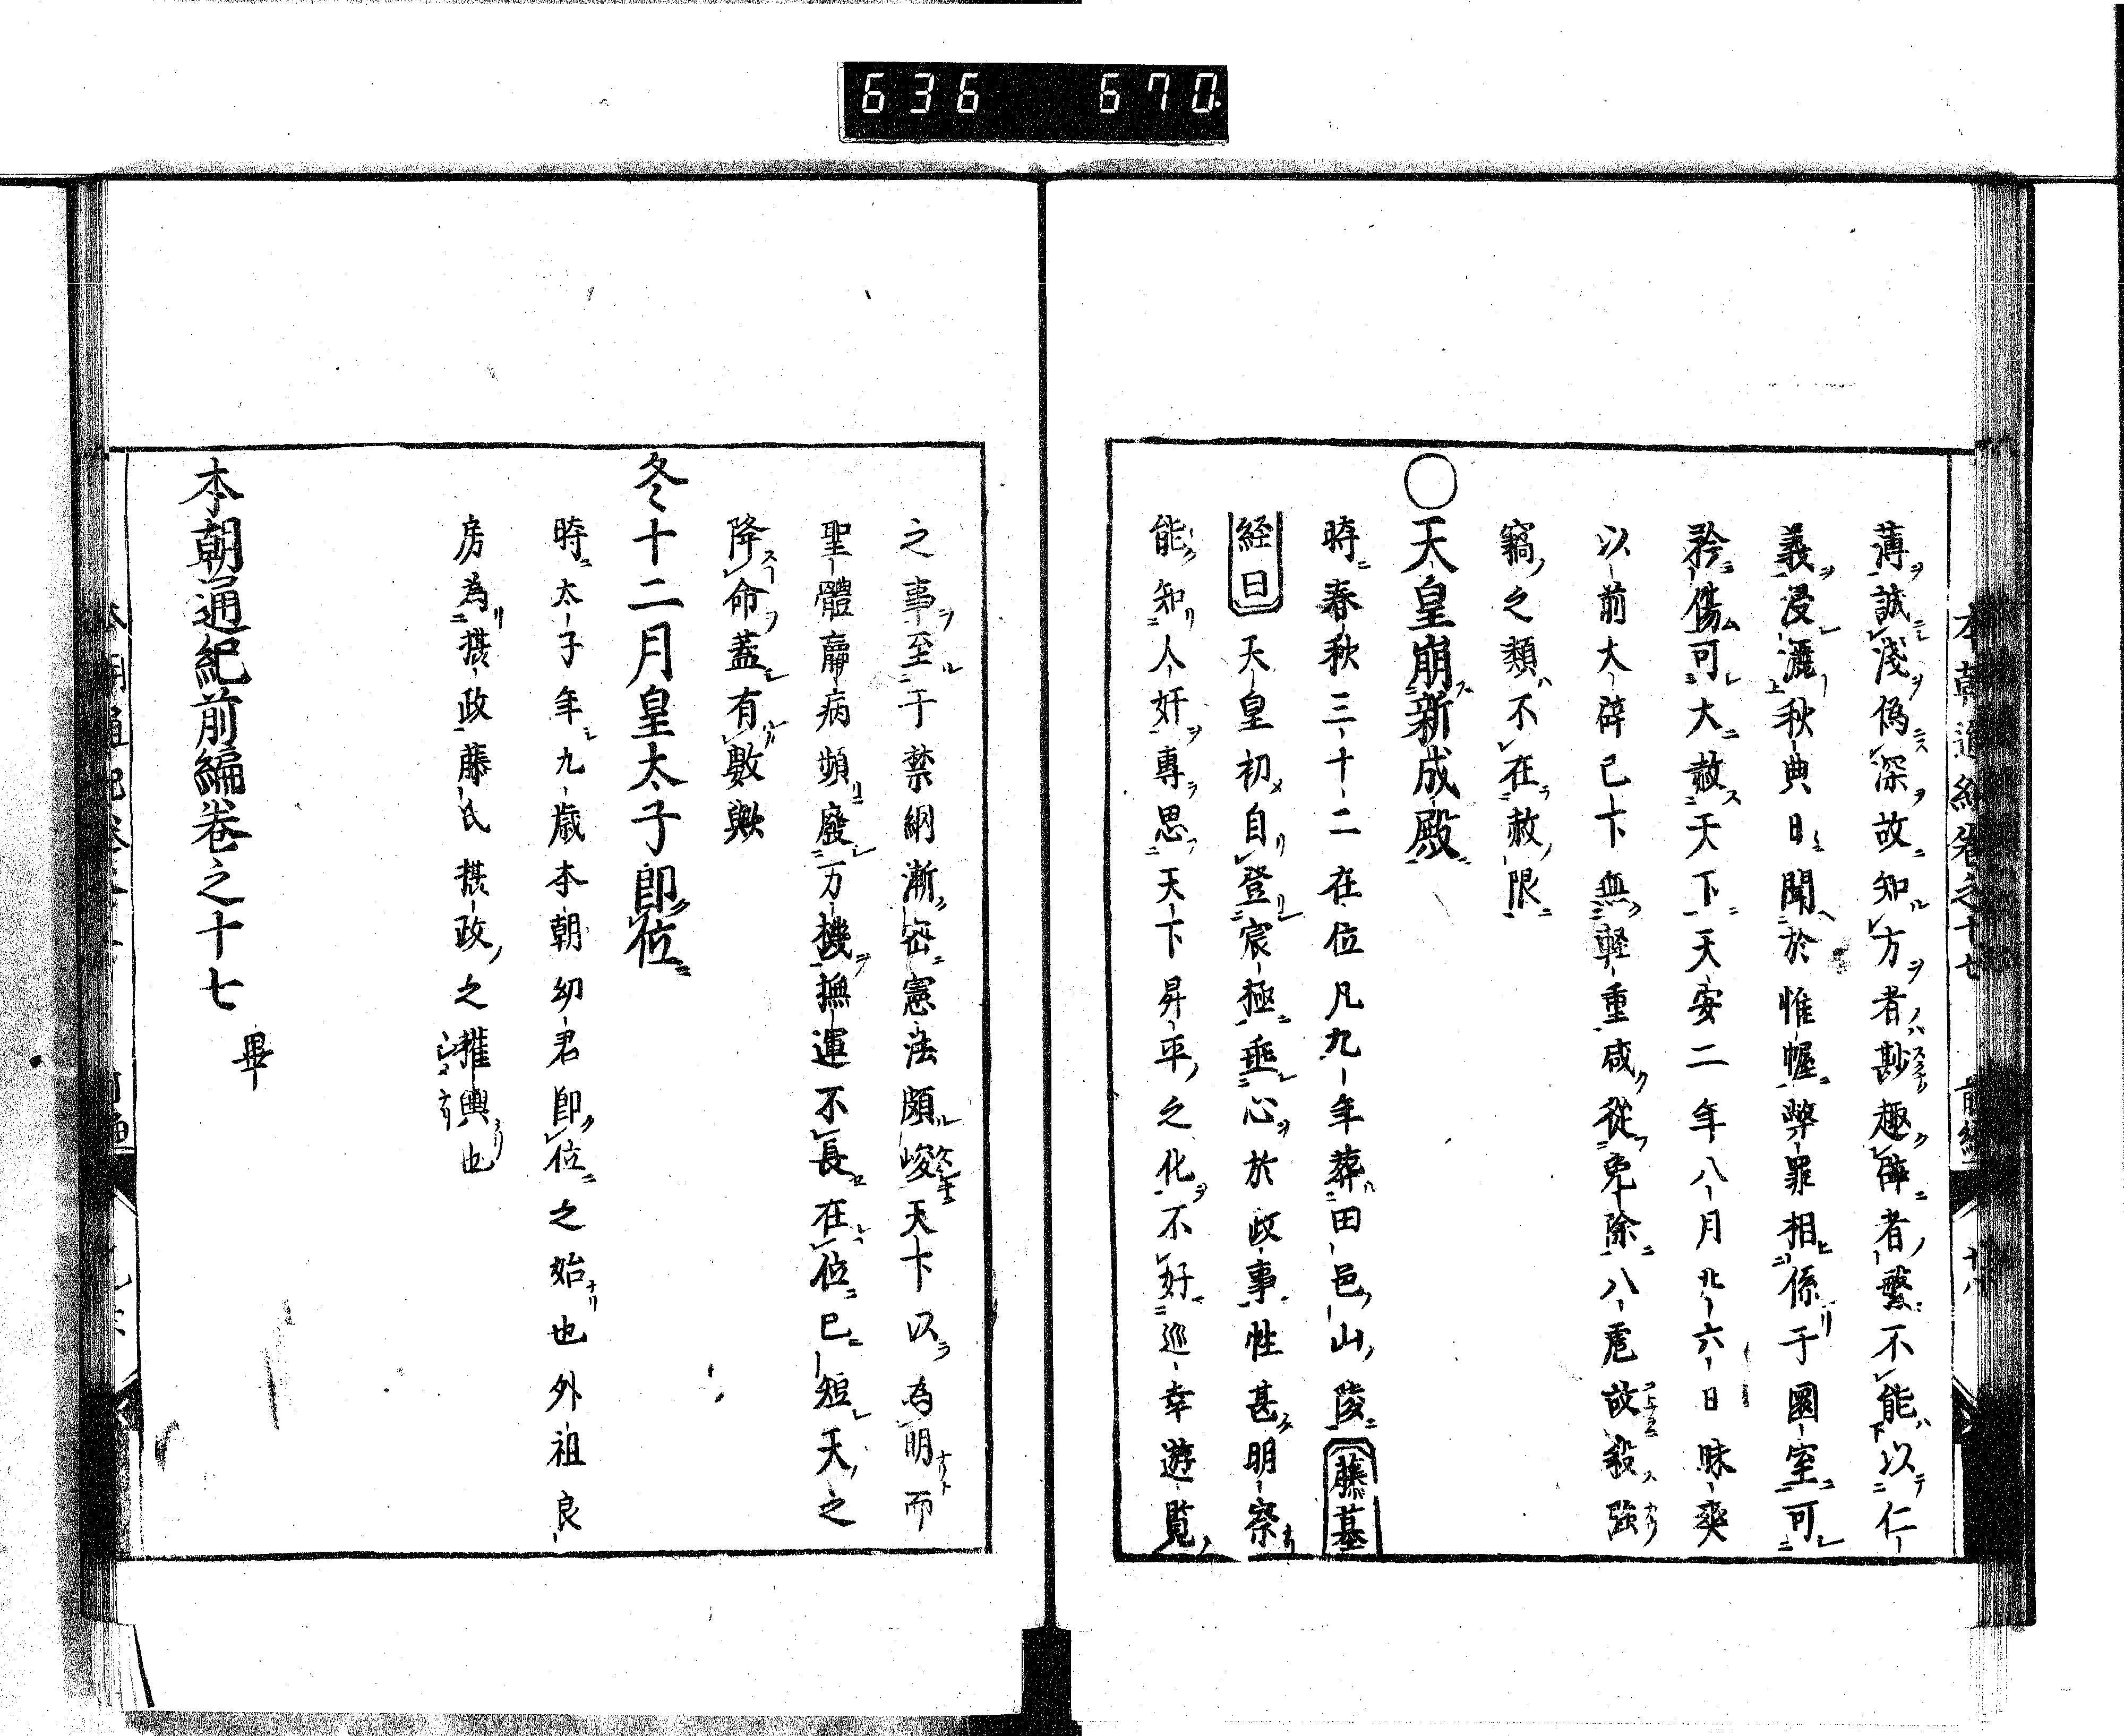 636 670
薄誠淺偽深故知方者尠趣辟者繁不能以仁
義浸灑秋典日聞於惟幄弊罪相係于圄室可
矜傷可大赦天下天安二年八月廿六日昧爽
以前大辟已下無輕重咸從免除八虐故殺強
竊之類不在赦限
〇天皇崩新成殿
時春秋三十二在位凡九年葬田邑山陵 藤墓
経曰 天皇初自登宸極垂心於政事性甚明察
能知人奸專思天下昇平之化不好巡幸遊覧
本朝通紀卷之十七 前編 十八
之事至于禁網漸密憲法頗峻天下以為明而
聖體羸病頻廢万機撫運不長在位已短天之
降命蓋有數歟
冬十二月皇太子即位
時太子年九歳本朝幼君即位之始也外祖良
房為摂政藤氏摂政之權輿也
本朝通紀前編卷之十七 畢